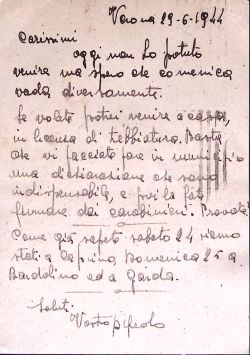 Verona 29-6-1944
Carissimi
oggi non ho potuto
venire ma spero che domenica
vada diversamente.
Se volete potrei venire a casa,
in licenza di trebbiatura. Basta
che vi facciate fare in municipio
una dichiarazione che sono
indispensabile, e poi la fate
firmare dai carabinieri. Provate
Come già sapete sabato 24 siamo
stati a Caprino, Domenica 25 a
Bardolino ed a Garda.
Saluti
Vostro